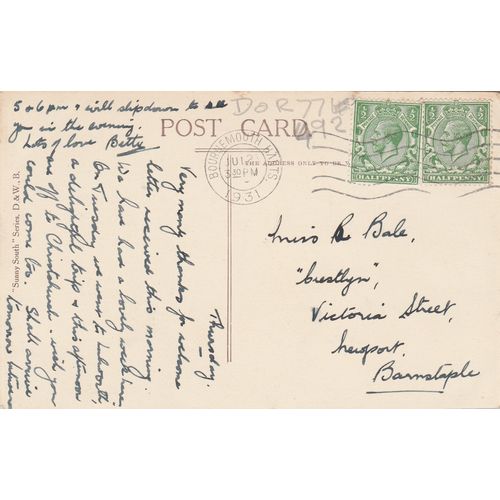 5 & 6 pm & will slip down to see
you in the evening.
Lots of love Betty
POST CARD.
DOR 776
492
BOURNEMOUTH POOLE
JUL
3 30 PM
1931
HALFPENNY
HALFPENNY
"Sunny South" Series, D & W, B.
Thursday.
Very many thanks for welcome
letter received this morning.
We have had a lovely week here.
On Tuesday we went to Lulworth,
a delightful trip & this afternoon
are off to Christchurch - wish you
could come too. Shall arrive
tomorrow between
Miss R Bale,
"Crestlyn",
Victoria Street,
Newport,
Barnstaple